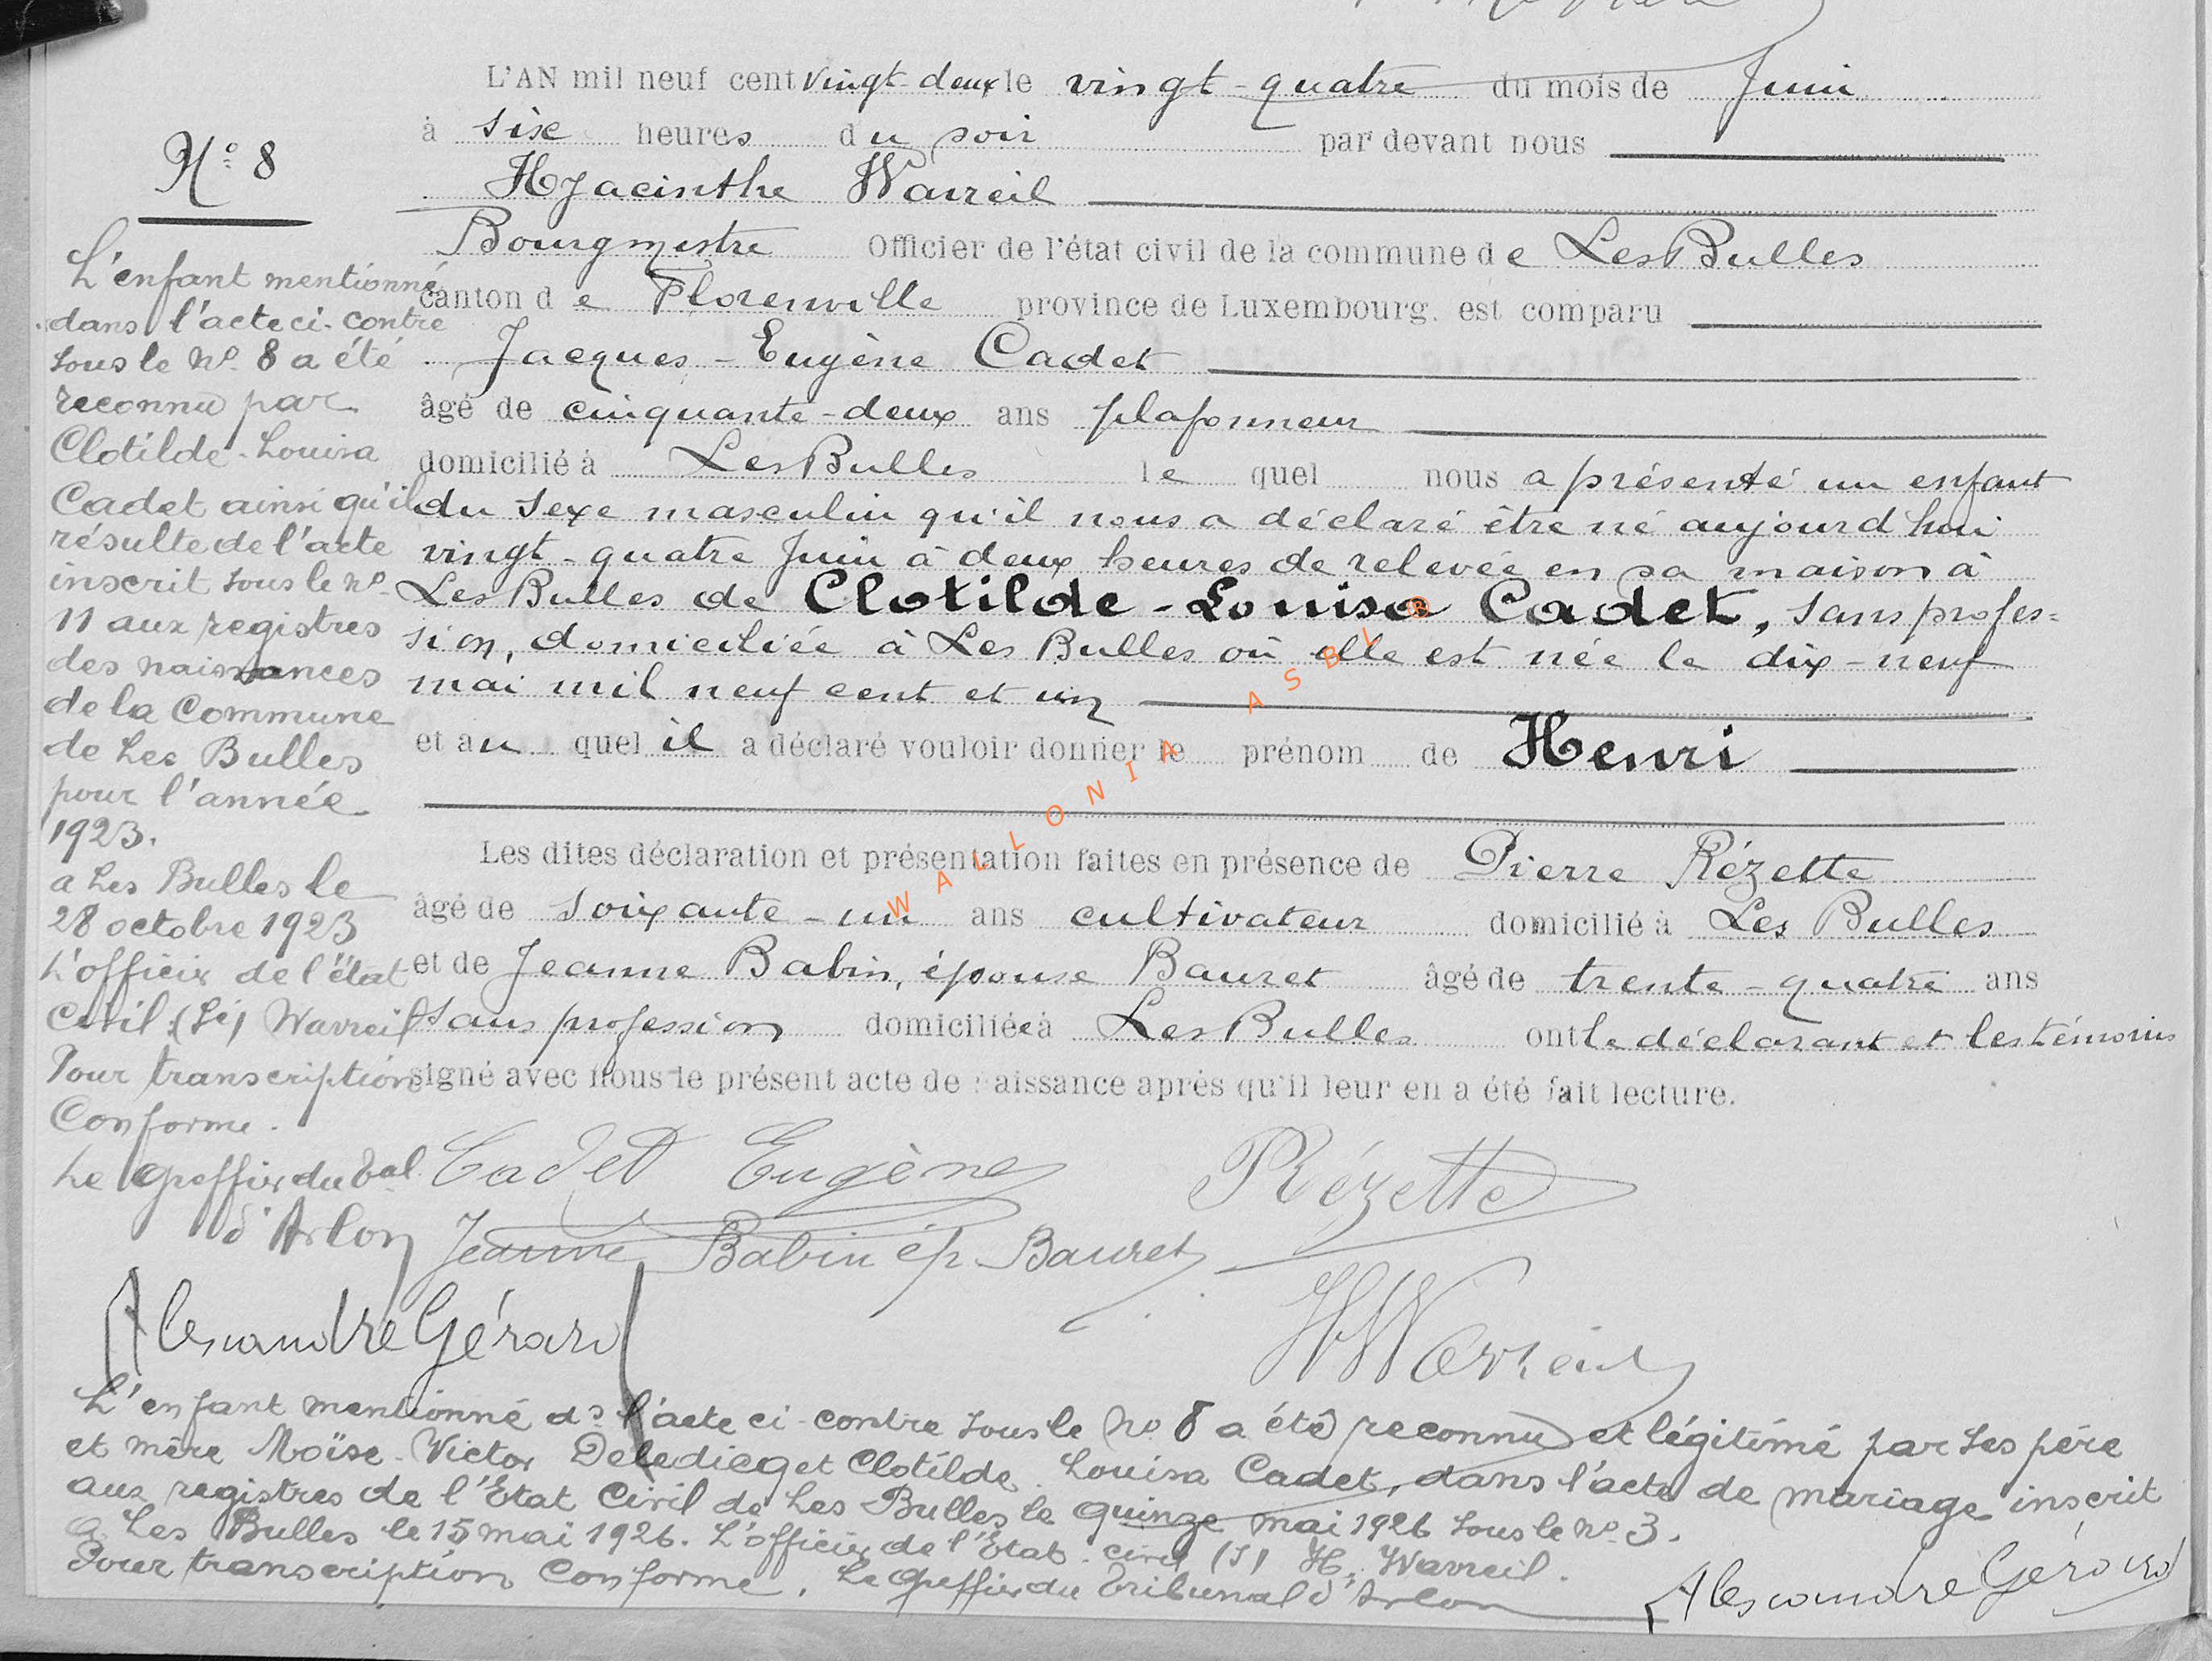 L'AN mil neuf cent vingt-deux le vingt-quatre du mois de Juin
à six heures du soir par devant nous
Hyacinthe Wavreil
Bourgmestre Officier de l'état civil de la commune de Les Bulles
canton de Florenville province de Luxembourg. est comparu
Jacques-Eugène Cadet
âgé de cinquante-deux ans plafonneur
domicilié à Les Bulles le quel nous a présenté un enfant
du sexe masculin qu'il nous a déclaré être né aujourd'hui
vingt-quatre Juin à deux heures de relevée en sa maison à
Les Bulles de Clotilde-Louisa Cadet, sans profes=
sion, domiciliée à Les Bulles où elle est née le dix-neuf
mai mil neuf cent et un
et au quel il a déclaré vouloir donner le prénom de Henri
Les dites déclaration et présentation faites en présence de Pierre Rézette
âgé de soixante-un ans cultivateur domicilié à Les Bulles
et de Jeanne Babin, épouse Bauret âgé de trente-quatre ans
sans profession domiciliée à Les Bulles ont le déclarant et les témoins
signé avec nous le présent acte de naissance après qu'il leur en a été fait lecture.
N° 8
L'enfant mentionné
dans l'acte ci-contre
sous le N° 8 a été
reconnu par
Clotilde-Louisa
Cadet ainsi qu'il
résulte de l'acte
inscrit sous le n°
11 aux registres
des naissances
de la Commune
de Les Bulles
pour l'année
1923.
a Les Bulles le
28 octobre 1923
L'officier de l'état
Civil (Sé) Wavreil
Pour transcription
Conforme.
Le Greffier du Tal
d'Arlon
Alexandre Gérard
Cadet Eugène
Rézette
Jeanne Babin ép. Bauret
H Wavreil
L'enfant mentionné ds l'acte ci-contre sous le No 8 a été reconnu et légitimé par ses père
et mère Moïse-Victor Deledicq et Clotilde Louisa Cadet, dans l'acte de mariage inscrit
aux registres de l'Etat Civil de Les Bulles le quinze mai 1926 sous le n° 3.
a Les Bulles le 15 mai 1926. L'officier de l'Etat-civil (S) H. Wavreil.
Pour transcription Conforme. Le Greffier du Tribunal d'Arlon
Alexandre Gérard
WALLONIA ASBL ®